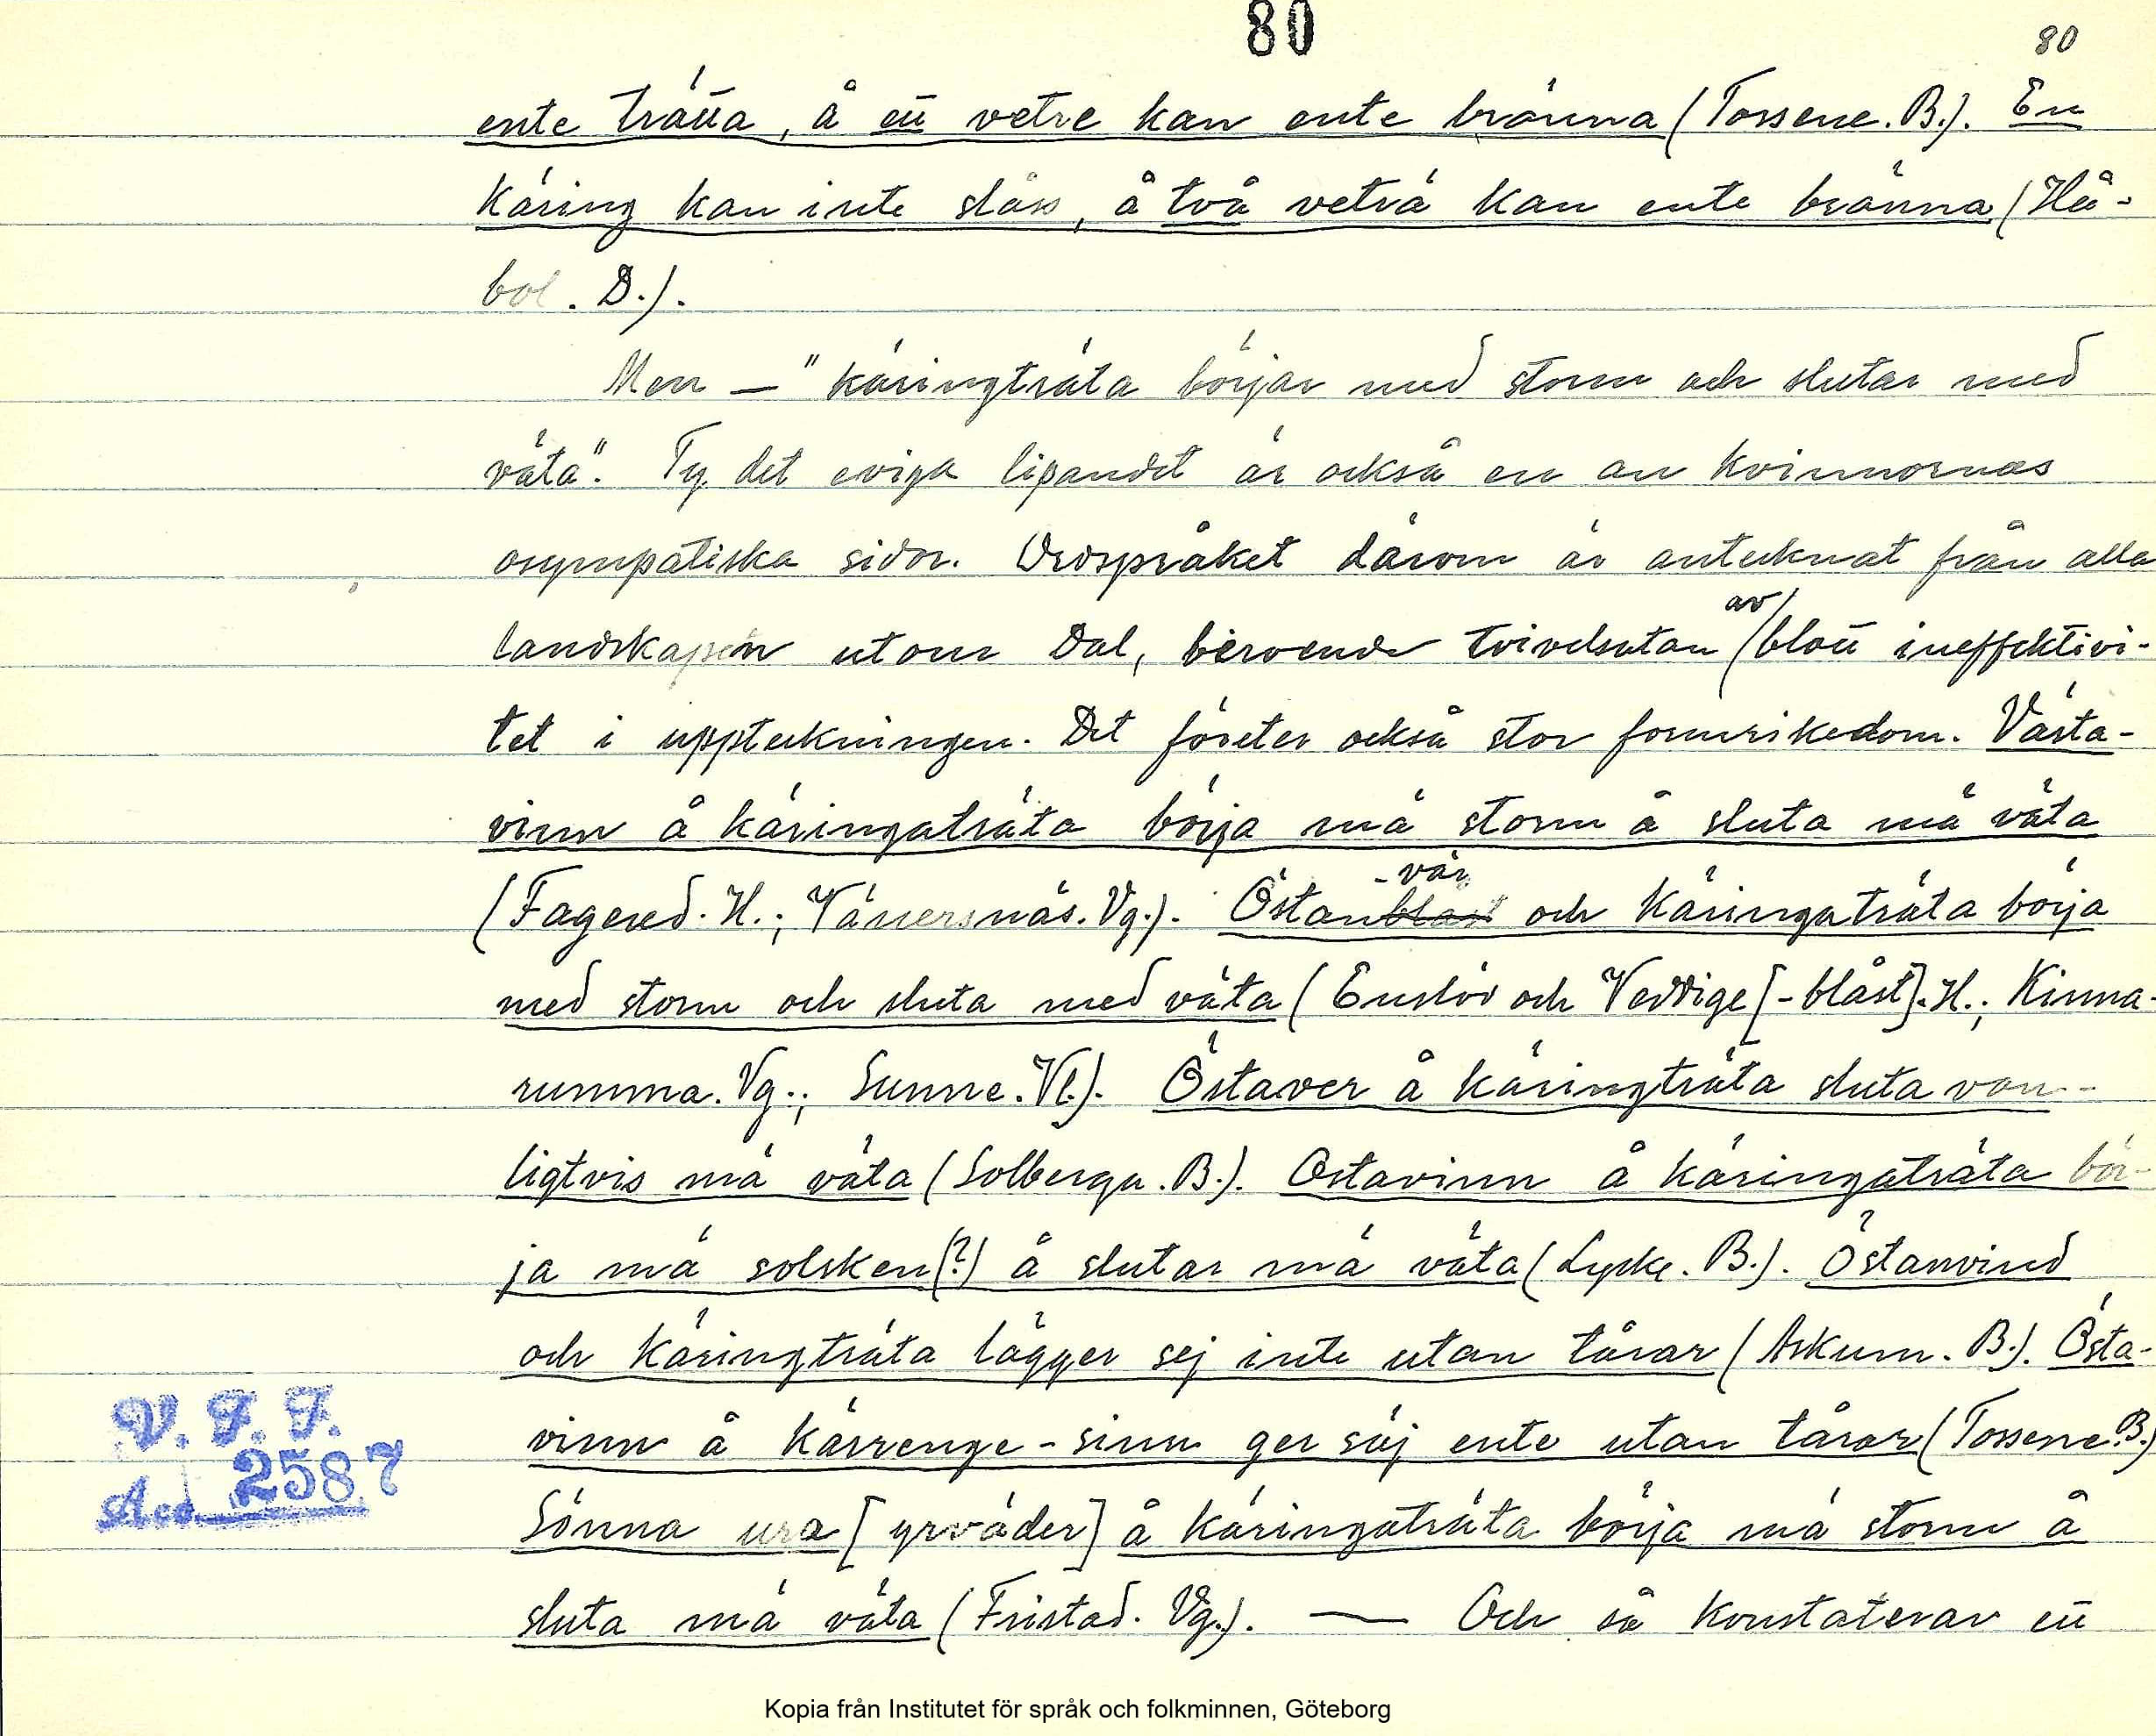 80
80
ente trätta, å ett vetre kan ente bränna (Tossene. B.). En
käring kan inte slåss, å två veträ kan ente bränna (Hå-
bol. D.).
Men — "käringträta börjar med storm och slutar med
väta". Ty det eviga lipandet är också en av kvinnornas
osympatiska sidor. Ordspråket därom är antecknat från alla
landskapen utom Dal, beroende tvivelsutan av blott ineffektivi-
tet i uppteckningen. Det företer också stor formrikedom. Västa-
vinn å käringaträta börja mä storm å sluta mä väta
(Fagered. H.; Vänersnäs. Vg.). Östanblåst -vär och käringaträta börja
med storm och sluta med väta (Enslöv och Veddige [-blåst]. H.; Kinna-
rumma. Vg.; Sunne. Vl.). Östaver å käringträta sluta van-
ligtvis mä väta (Solberga. B.). Östavinn å käringaträta bör-
ja mä solsken (?) å slutar mä väta (Lycke. B.). Östanvind
och käringträta lägger sej inte utan tårar (Askum. B.). Östa-
vinn å kärrenge-sinn ger säj ente utan tårar (Tossene. B.)
Sönna ura [yrväder] å käringaträta börja mä storm å
sluta mä väta (Fristad. Vg.). — Och så konstaterar ett
V. F. F.
Acc. 2587
Kopia från Institutet för språk och folkminnen, Göteborg